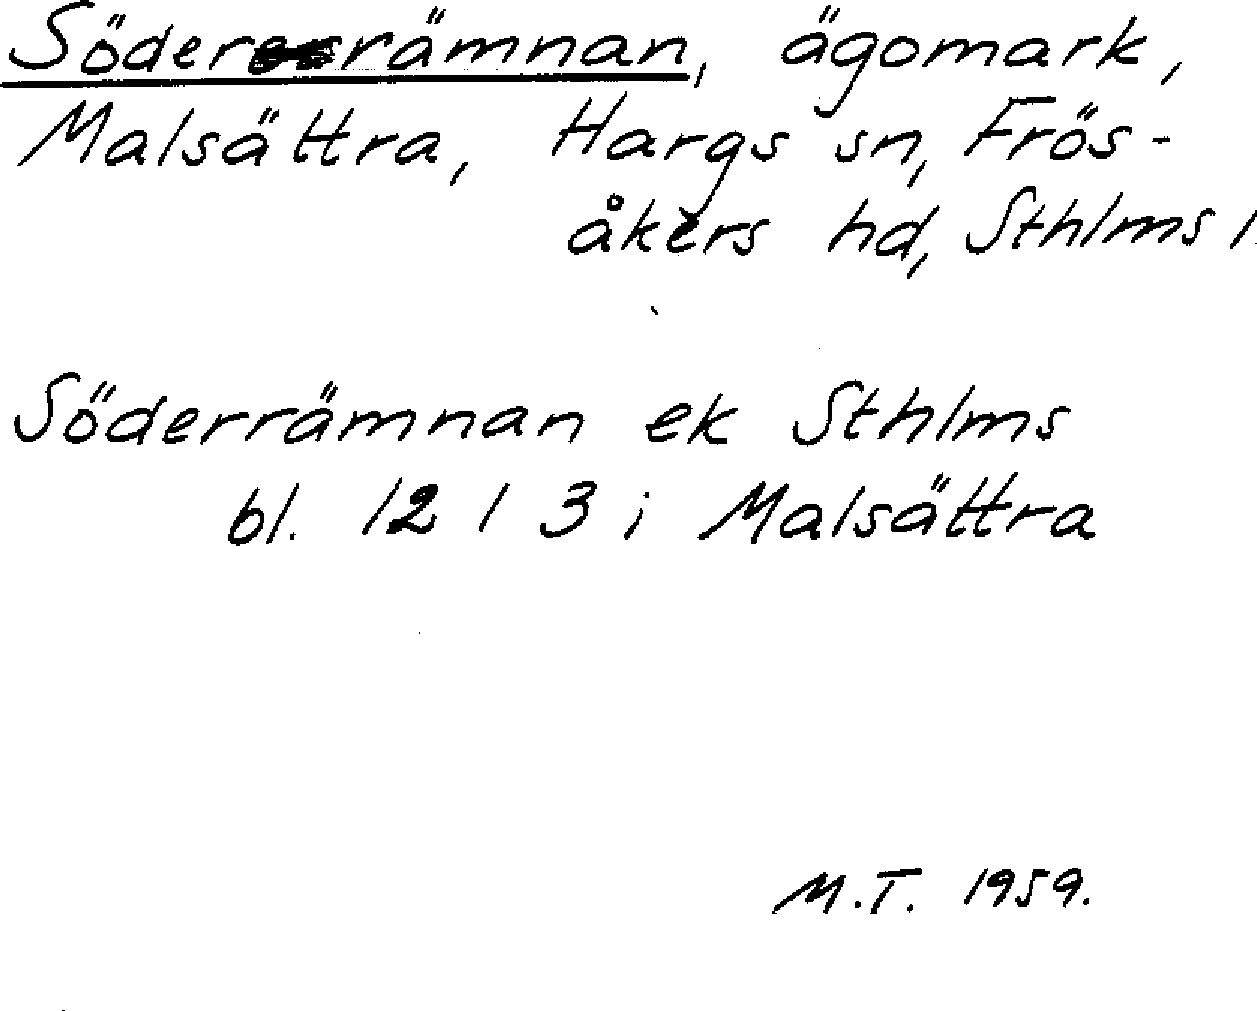 Söderrämnan, ägomark,
Malsättra, Hargs sn, Frös-
åkers hd, Sthlms l.
Söderrämnan ek Sthlms
bl. 12 I 3 i Malsättra
M.T. 1959.